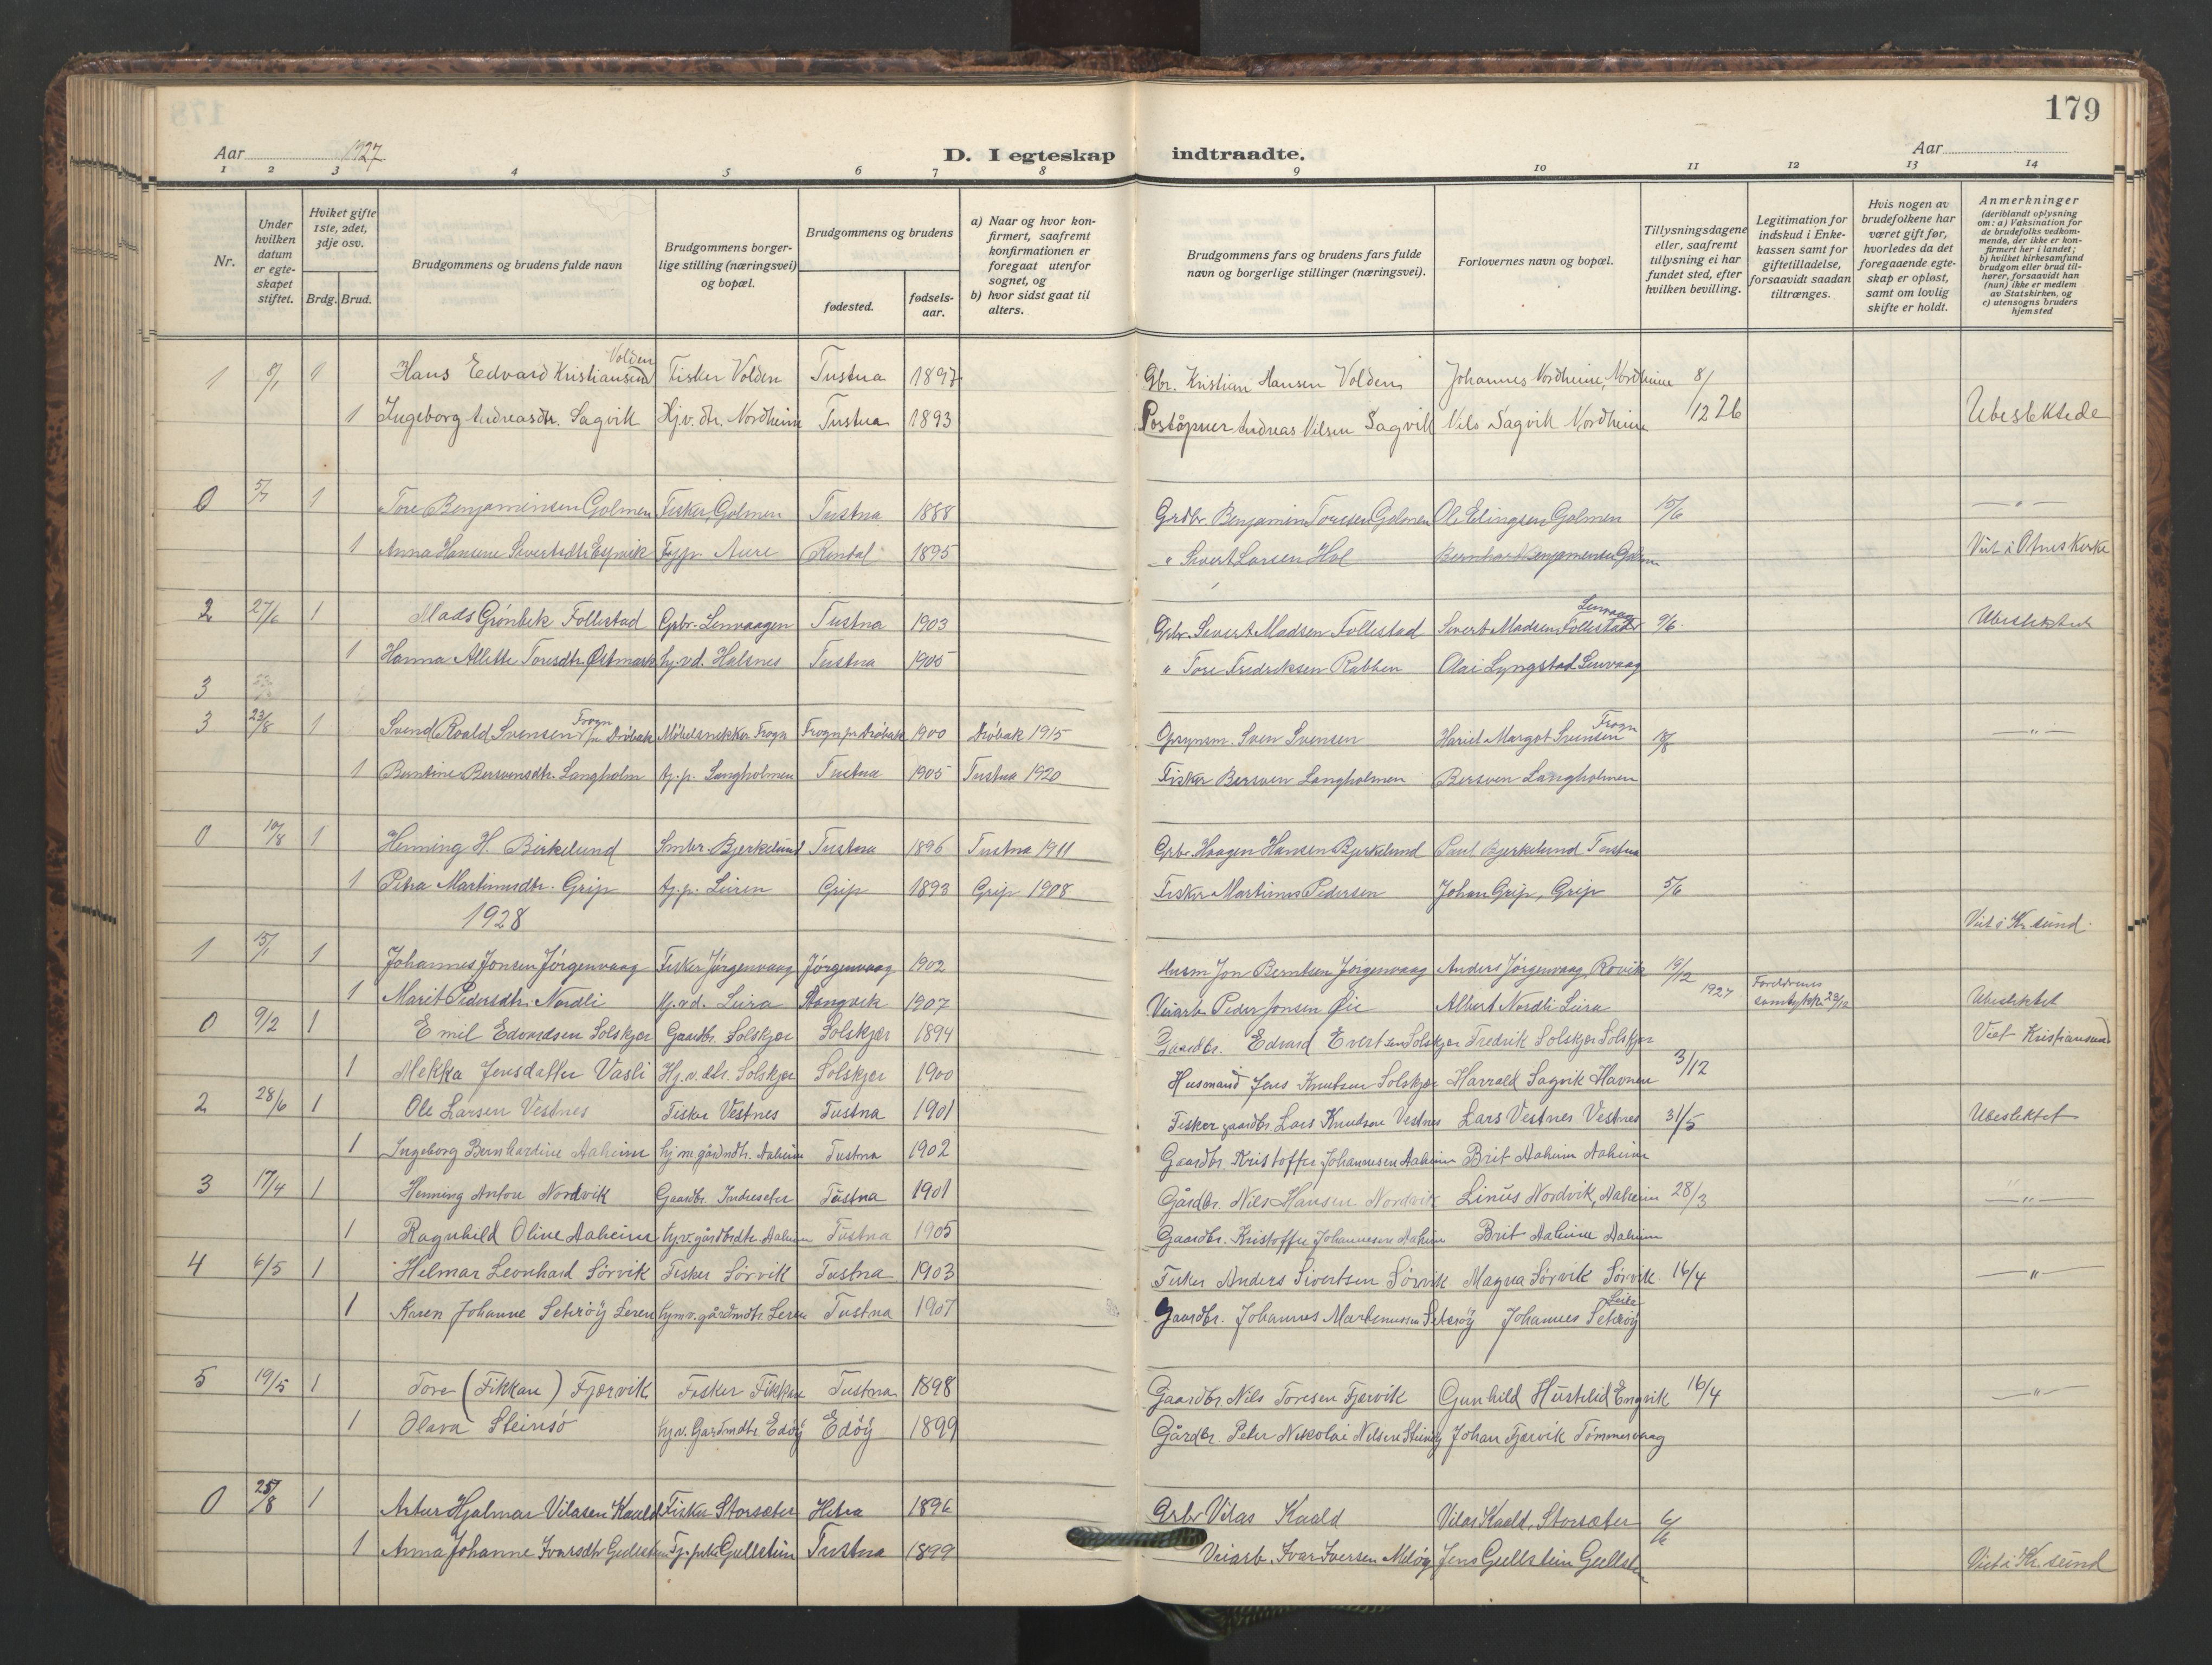 179
Aar 1927
D. I egteskap indtraadte.
Aar
1 2 3 4 5 6 7 8 9 10 11 12 13 14
Nr.
Under hvilken datum er egteskapet stiftet.
Hviket gifte 1ste, 2det, 3dje osv.
Brdg. Brud.
Brudgommens og brudens fulde navn
Brudgommens borgerlige stilling (næringsvei) og bopæl.
Brudgommens og brudens
fødested.
fødselsaar.
a) Naar og hvor konfirmert, saafremt konfirmationen er foregaat utenfor sognet, og
b) hvor sidst gaat til alters.
Brudgommens fars og brudens fars fulde navn og borgerlige stillinger (næringsvei).
Forlovernes navn og bopæl.
Tillysningsdagene eller, saafremt tillysning ei har fundet sted, efter hvilken bevilling.
Legitimation for indskud i Enkekassen samt for giftetilladelse, forsaavidt saadan tiltrænges.
Hvis nogen av brudefolkene har været gift før, hvorledes da det foregaaende egteskap er opløst, samt om lovlig skifte er holdt.
Anmerkninger
(deriblandt oplysning om: a) Vaksination for de brudefolks vedkommende, der ikke er konfirmert her i landet; b) hvilket kirkesamfund brudgom eller brud tilhører, forsaavidt han (hun) ikke er medlem av Statskirken, og c) utensogns bruders hjemsted
1 8/1 1 Hans Edvard Kristiansen Volden Fisker Volden Tustna 1897 Gbr. Kristian Hansen Volden Johannes Nordheim, Nordheim 8/12 26
1 Ingeborg Andreasdtr. Sagvik Hj.v. dtr. Nordheim Tustna 1893 Poståpner Andreas Nilsen Sagvik Nils Sagvik Nordheim Ubeslektede
0 5/7 1 Tore Benjaminsen Golmen Fisker, Golmen Tustna 1888 Grdbr Benjamin Toresen Golmen Ole Elingsen Golmen 15/6 — " —
1 Anna Hansine Sivertsdtr. Aure 1895 " Sivert Larsen Hol Bernhard Benjaminsen Golmen Viet i
2 27/6 1 Mads Grönbek Follestad Gbr. Lenvaagen Tustna 1903 Gbr. Sivert Madsen Follestad Sivert Madsen Follestad Lenvaag 9/6. Ubeslektet
1 Hanna Allette Toresdtr. Østmark hj.vd. Halsnes Tustna 1905 " Tore Fredriksen Rabben Olai Lyngstad Lenvaag
3
3 23/8 1 Svend Roald Svensen Frogn pr Drøbak Möbelsnekker Frogn Frogn pr Drøbak 1900 Drøbak 1915 Opsynsm. Sven Svensen Hariet Margot Svensen Frogn — " —
1 Berntine Bersvensdtr. Langholm tj.p. Langholmen Tustna 1905 Tustna 1920 Fisker Bersven Langholmen Bersven Langholmen
0 10/8 1 Henning H. Birkelund Smbr. Bjerkelund Tustna 1896 Tustna 1911 Gbr. Haagen Hansen Bjerkelund Paul Bjerkelund Tustna
1 Petra Martinusdtr. Grip tj.p. Leiren Grip 1893 Grip 1908 Fisker Martinus Pedersen Johan Grip, Grip 5/6
1928 Viet i Kr.sund.
1 15/1 1 Johannes Jonsen Jörgenvaag Fisker Jörgenvaag Jörgenvaag 1902 Husm Jon Berntsen Jörgenvaag Anders Jörgenvaag, Rovik 19/12 1927
1 Marit Pedersdtr. Nordli hj.vd. Leira Stangvik 1907 Veiarb. Peder Jonsen Øie Albert Nordli Leira Foreldrenes samtykke 29/12 Ubeslektet
0 9/2 1 Emil Edvardsen Solskjær Gaardbr. Solskjær Solskjær 1894 Gaardbr. Edvard Evertsen Solskjær Fredrik Solskjær Solskjær Viet Kristiansund
1 Mekka Jensdatter Vasli Hj.v.dtr. Solskjær Solskjer 1900 Husmand Jens Knutsen Solskjær Harrald Sagvik Havnen 3/12
2 28/6 1 Ole Larsen Vestnes Fisker Vestnes Tustna 1901 Fisker gaardbr. Lars Knudsen Vestnes Lars Vestnes Vestnes 31/5 Ubeslektet
1 Ingeborg Bernhardine Aaheim hj.m. gårdmdtr. Aaheim Tustna 1902 Gaardbr. Kristoffer Johannesen Aaheim Brit Aaheim Aaheim
3 17/4 1 Henning Anton Nordvik Gaardbr. Indreseter Tustna 1901 Gårdbr. Nils Hansen Nordvik Linus Nordvik, Aaheim 28/3 — " —
1 Ragnhild Oline Aaheim hj.v. gårdbrdtr. Aaheim Tustna 1905 Gaardbr. Kristoffer Johannesen Aaheim Brit Aaheim Aaheim
4 6/5 1 Hilmar Leonhard Sörvik Fisker Sörvik Tustna 1903 Fisker Anders Sivertsen Sörvik Magna Sörvik Sörvik 16/4 — " —
1 Karen Johanne Seteröy Leren hjm.v. gårdmdtr. Leren Tustna 1907 Gaardbr. Johannes Martinussen Seteröy Johannes Seteröy
5 19/5 1 Tore (Fikkan) Fjærvik Fisker Fikkan Tustna 1898 Gaardbr. Nils Toresen Fjærvik Gunhild Hustelid Engvik 16/4 — " —
1 Olava Steinsö hj.v. Gardmdtr. Edöy Edöy 1899 Gårdbr. Peter Nikolai Nilsen Johan Fjærvik Tömmervaag
0 25/8 1 Artur Hjalmar Vilasen Kaald Fisker Storsæter Hitra 1896 Arbr Vilas Kaald Vilas Kaald, Storsæter
1 Anna Johanne Ivarsdtr Gullstein Tj.pike Gullstein Tustna 1899 Veiarb. Ivar Iversen Jens Gullstein Gullstein Viet i Kr.sund